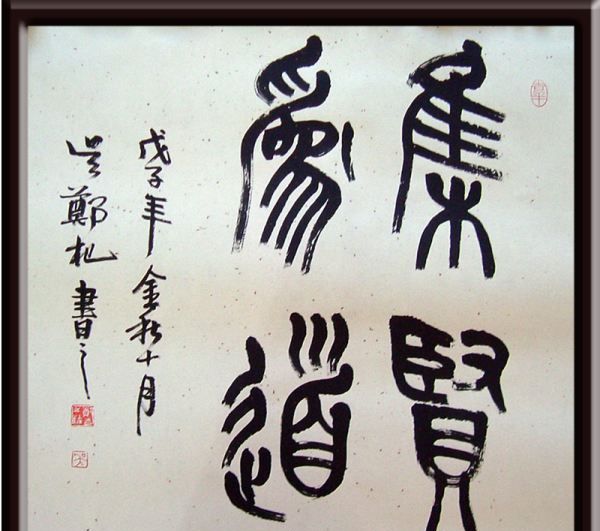 集賢
為道
戊子年金秋十月
吳鄭書之